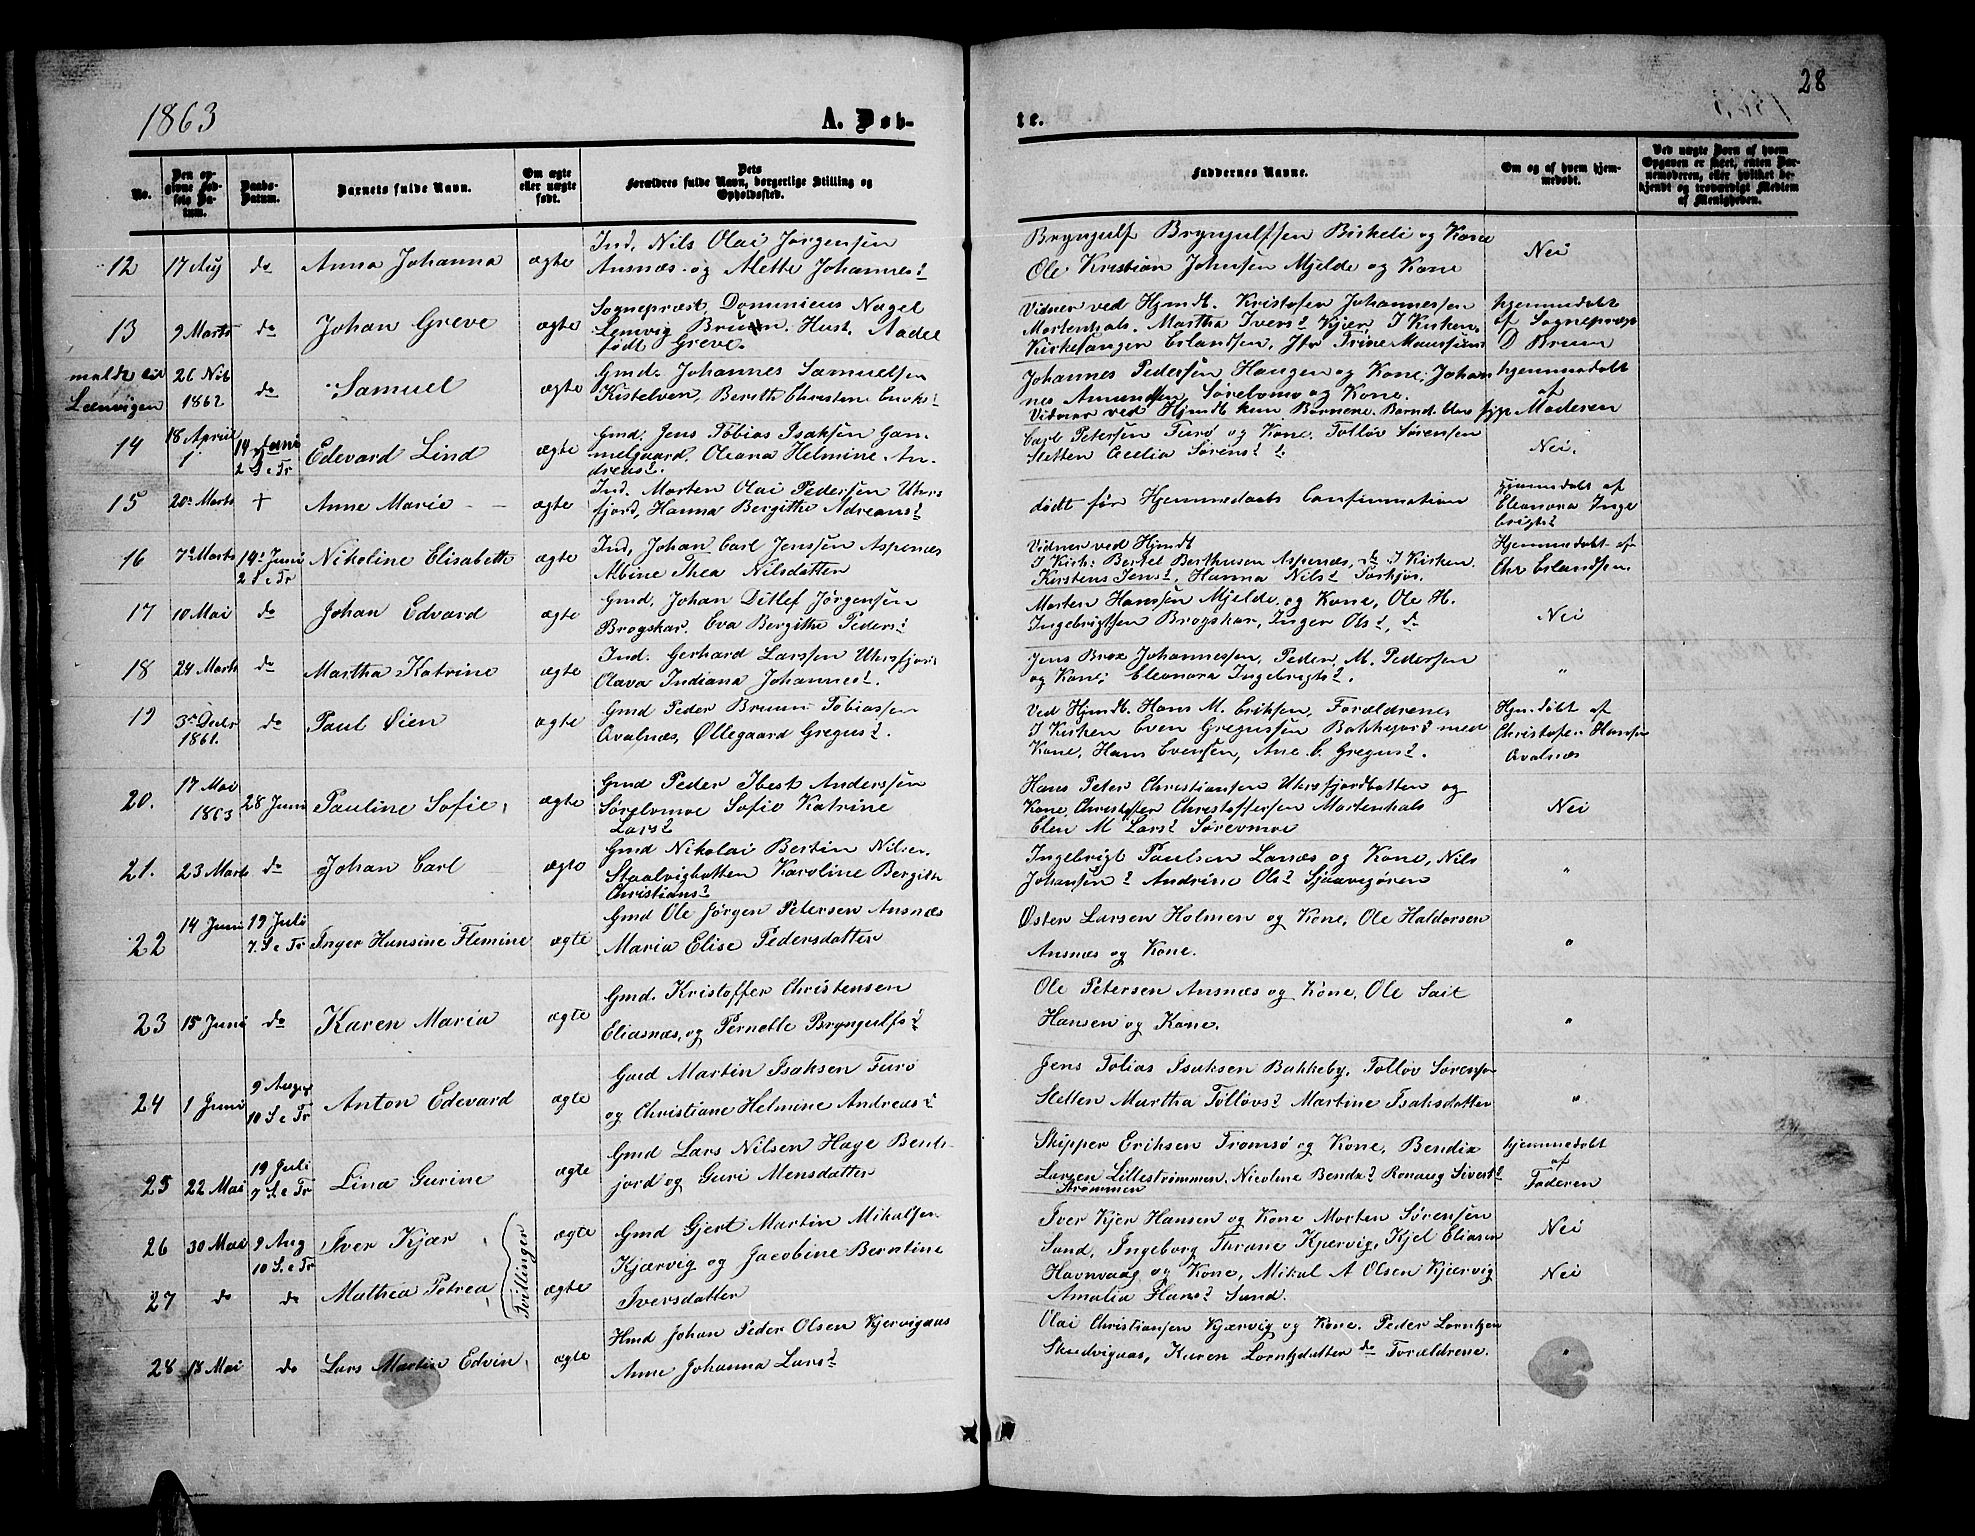 28
1863
A. Døb-
te.
No.
Den opgivne Fødsels Datum.
Daabs-Datum.
Barnets fulde Navn.
Om ægte eller uægte født.
Dets Forældres fulde Navn, borgerlige Stilling og Opholdssted.
Faddernes Navne.
Om og af hvem hjemmedøbt.
Ved uægte Børn af hvem Opgaven er skeet, enten Barnemoderen, eller hvilket bekjendt og troværdigt Medlem af Menigheden.
12 17 Aug do Anna Johanna ægte
Ind. Nils Olai Jørgensen
Ansnæs og Alette Johannesd
Bryngulf Bryngulfsen Birkeli og Kone
Ole Kristian Johnsen Mjelde og Kone
Nei
13 9 Marts do Johan Greve ægte
Sognepræst Dominicus Nagel
Lemvig Bruun. Hust. Aadel
født Greve.
Vidner ved Hjmdb. Kristofer Johannessen
Mortenhals. Martha Iversd Kjær, I Kirken,
Kirkesanger Erlandsen, Jfr Trine
hjemmedøbt
af Sognepræst
D Bruun
26
1862 do Samuel ægte
Gmd. Johannes Samuelsen
Kistelven, Berith Christen
Johannes Pedersen Haugen og Kone, Johan
nes Amundsen, Sørelvmo og Kone.
Vidner ved Hjmdb kun Børnene. Barnd. blev
hjemmedøbt
af
Moderen
14 18 April 14 Juni
2 S e Tr Edevard Lind ægte
Gmd. Jens Tobias Isaksen Gam
melgaard. Oleana Helmine An
dreasd.
Carl Petersen Turø og Kone. Tolløv Sørensen
Sletten Cecilia Sørensd.
Nei.
15 20 Marts + Anne Marie ægte
Ind. Morten Olai Pedersen Uhrs
fjord, Hanna Bergithe Adreasd
dødt før Hjemmedaabs Confirmation
hjemmedøbt af
Eleonora Inge
brigtsd
16 7 Marts 14 Juni
2 S e Tr Nikoline Elisabeth ægte
Ind, Johan Carl Jenssen Aspenæs
Albine Thea Nilsdatter
Vidner ved Hjmdb
I Kirk: Bertel Berthusen Aspenæs, do I Kirken
Kirstens Jensd, Hanna Nilsd
Hjemmedøbt af
Chr Erlandsen.
17 10 Mai do Johan Edvard ægte
Gmd, Johan Ditlef Jørgensen
Brogskar. Eva Bergithe Pedersd
Morten Hansen Mjelde og Kone, Ole H.
Ingebrigtsen Brogskar, Inger Olsd, do
Nei
18 24 Marts do Martha Katrine ægte
Ind. Gerhard Larssen Uhrsfjord
Olava Indiana Johannesd.
Jens Brox Johannessen, Peder M. Pedersen
og Kone; Eleonora Ingebrigtsd.
"
19 3 Decbr
1861. do Paul Øien ægte
Gmd Peder Bruun Tobiassen
Qvalnæs, Øllegaard Gregusd.
Ved Hjmdb. Hans M. Eriksen, Forældrene,
I Kirken Even Gregussen Bakkejord med
Kone, Hans Evensen, Ane C. Gregusd.
Hjmdøbt af
Christofer Hansen
Qvalnæs
20. 17 Mai
1863 28 Juni Pauline Sofie ægte
Gmd Peder Ibest Anderssen
Sørelvmoe Sofie Katrine
Larsd
Hans Peter Christiansen Uhrsfjordbotten og
Kone, Christoffer Christoffersen Mortenhals
Elen M Larsd Sørevmoe
Nei
21. 23 Marts do Johan Carl ægte
Gmd Nikolai Bertin Nilsen.
Staalvigbotten Karoline Bergith
Christiansd
Ingebrigt Paulsen Lanæs og Kone, Nils
Johansen Andrine Olsd
"
22 14 Juni 19 Juli
7. S e Tr Inger Hansine Flemine ægte
Gmd Ole Jørgen Petersen Ansnæs
Maria Elise Pedersdatter
Øster Larsen Holmen og Kone, Ole Haldorsen
Ansnæs og Kone.
"
23 15 Juni do Karen Maria ægte
Gmd. Kristoffer Christensen
Eliasnæs, og Pernelle Bryngulfsd
Ole Petersen Ansnæs og Kone, Ole Sait
Hansen og Kone.
"
24 1 Juni 9 August
10 S e Tr Anton Edevard ægte
Gmd Martin Isaksen Turø
og Christiane Helmine Andreasd
Jens Tobias Isaksen Bakkeby, Tolløv Sørensen
Sletten Martha Tolløvsd Martine Isaksdatter
"
25 22 Mai 19 Juli
7 S e Tr Lina Gurine ægte
Gmd Lars Nilsen Hage Bents
jord og Guri Mensdatter
Skipper Eriksen Tromsø og Kone, Bendix
Larsen Lillestrømmen. Nicoline Bendixd Ronaug Sivertsd
Strømmen
hjemmedøbt
af
Faderen
26 30 Mai 9 Aug
10 S. e Tr Iver Kjær ægte
27 do do Mathea Petrea ægte
Tvillinger
Gmd Gjert Martin Mikalsen
Kjærvig og Jacobine Berntine
Iversdatter
Iver Kjer Hansen og Kone Morten Sørensen
Sand, Ingeborg Thrane Kjærvig, Kjel Eliasen
Havnvaag og Kone, Mikal A Olsen Kjærvig
Amalia Hansd Sand.
Nei
Nei
28 18 Mai do Lars Martin Edvin ægte
Hmd Johan Peder Olsen Kjervigaas
Anne Johanna Larsd
Olai Christiansen Kjærvig og Kone. Peder Lorntzen
Skudvigaas, Karen Lorntzdatter do Forældrene.
"